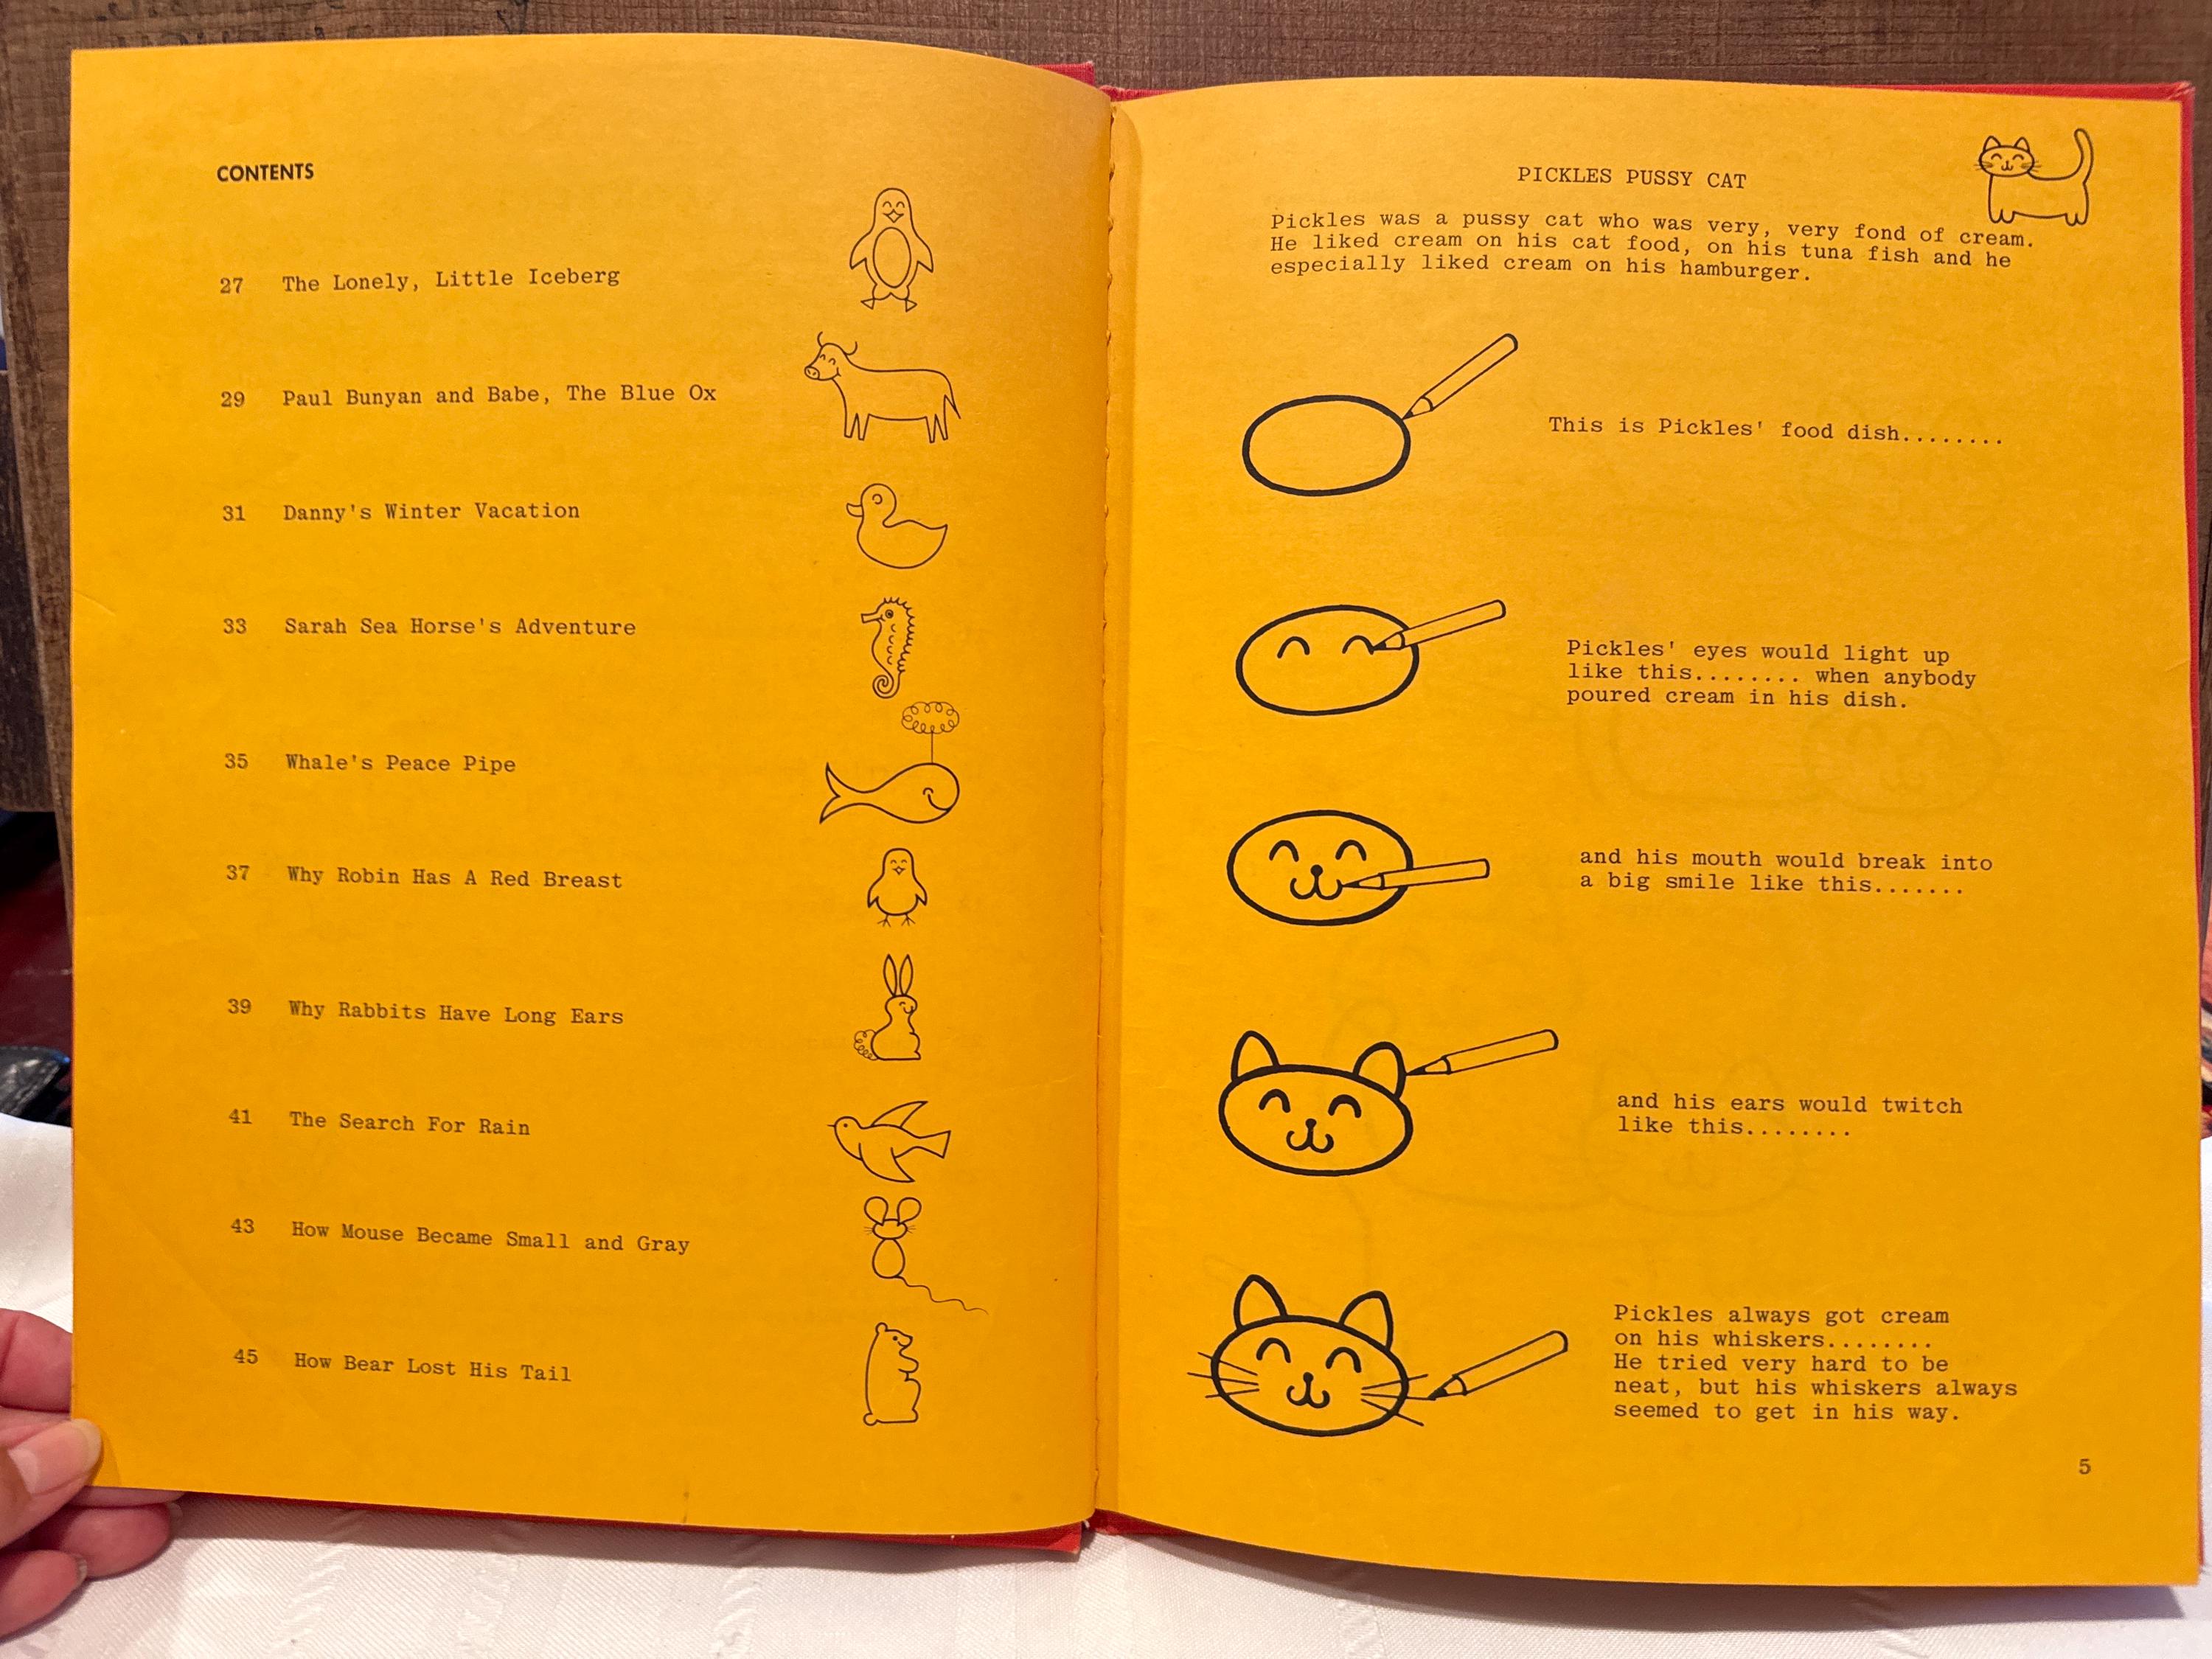 CONTENTS
27 The Lonely, Little Iceberg
29 Paul Bunyan and Babe, The Blue Ox
31 Danny's Winter Vacation
33 Sarah Sea Horse's Adventure
35 Whale's Peace Pipe
37 Why Robin Has A Red Breast
39 Why Rabbits Have Long Ears
41 The Search For Rain
43 How Mouse Became Small and Gray
45 How Bear Lost His Tail
PICKLES PUSSY CAT
Pickles was a pussy cat who was very, very fond of cream.
He liked cream on his cat food, on his tuna fish and he
especially liked cream on his hamburger.
This is Pickles' food dish........
Pickles' eyes would light up
like this........ when anybody
poured cream in his dish.
and his mouth would break into
a big smile like this.......
and his ears would twitch
like this........
Pickles always got cream
on his whiskers........
He tried very hard to be
neat, but his whiskers always
seemed to get in his way.
5